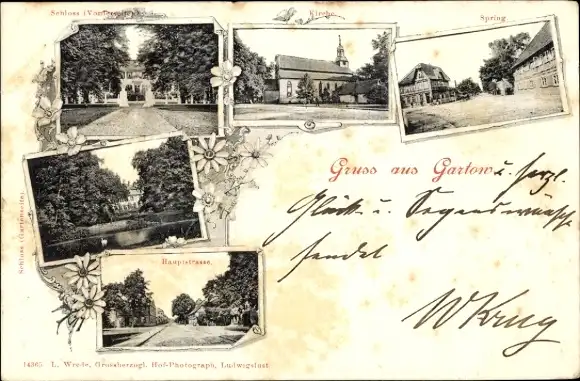 Schloss (Vorderseite)
Kirche.
Spring
Gruss aus Gartow u. herzl.
Glück- u. Segenswünsche
sendet
W Krug
Schloss (Gartenseite).
Hauptstrasse.
14365 L. Wrede, Grossherzogl. Hof-Photograph, Ludwigslust